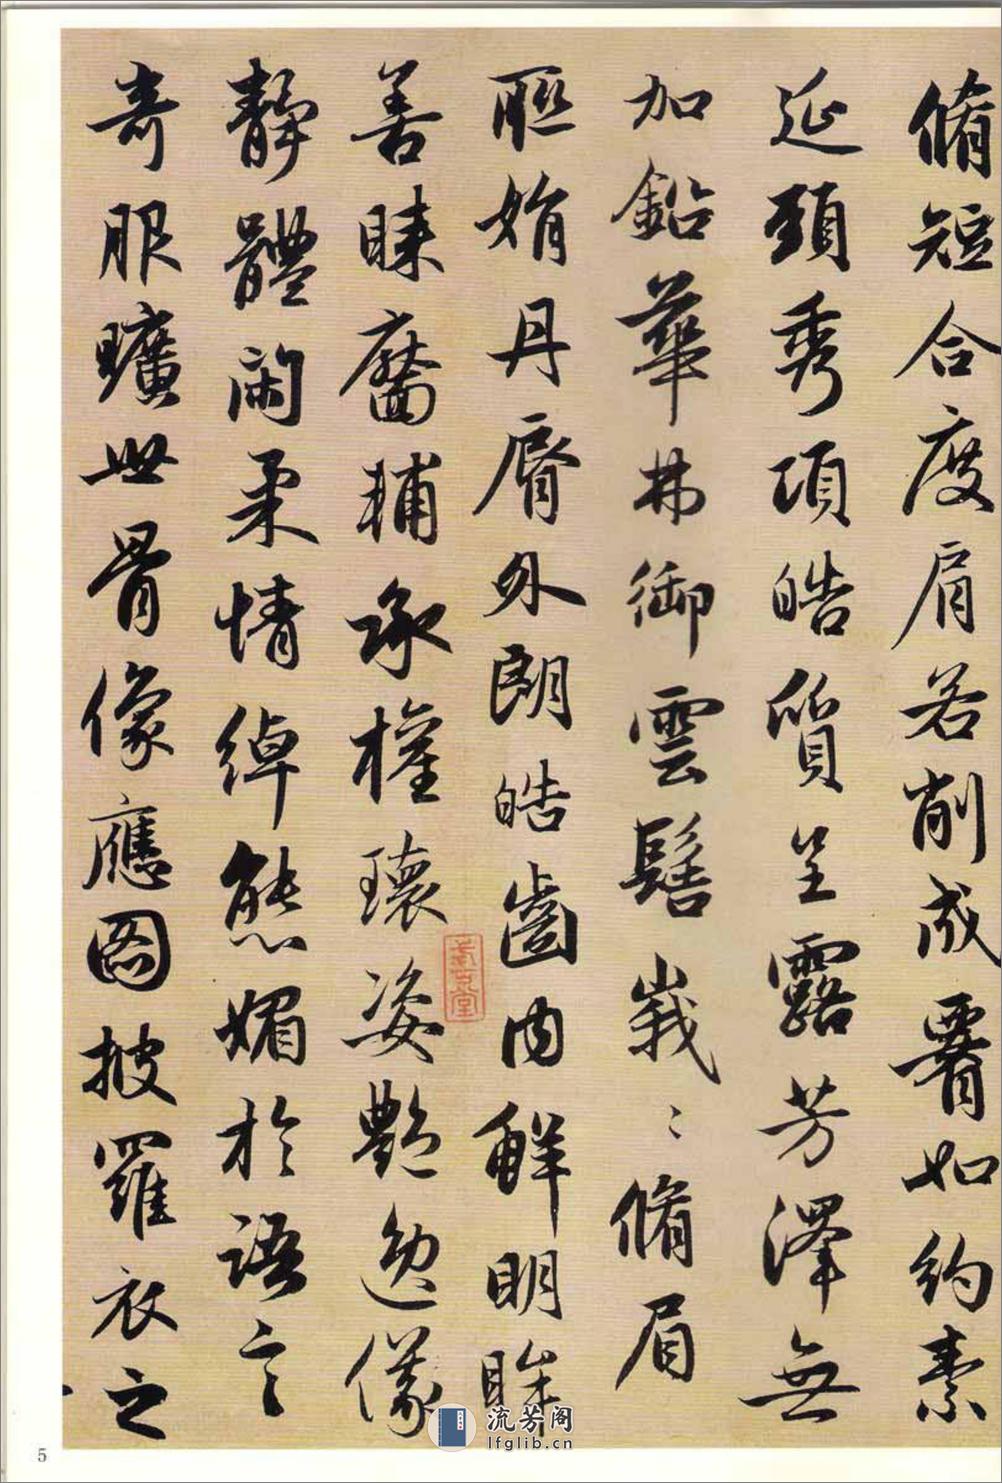 脩短合度肩若削成署如約素
延頸秀項皓質呈露芳澤無
加鉛華弗御雲髻峩〻脩眉
聯娟丹脣外朗皓齒内鮮明眸
善睞靨輔承權瓌姿艷逸儀
靜體閑柔情綽態媚於語言
奇服曠世骨像應圖披羅衣之
流芳阁
lfglib.cn
5